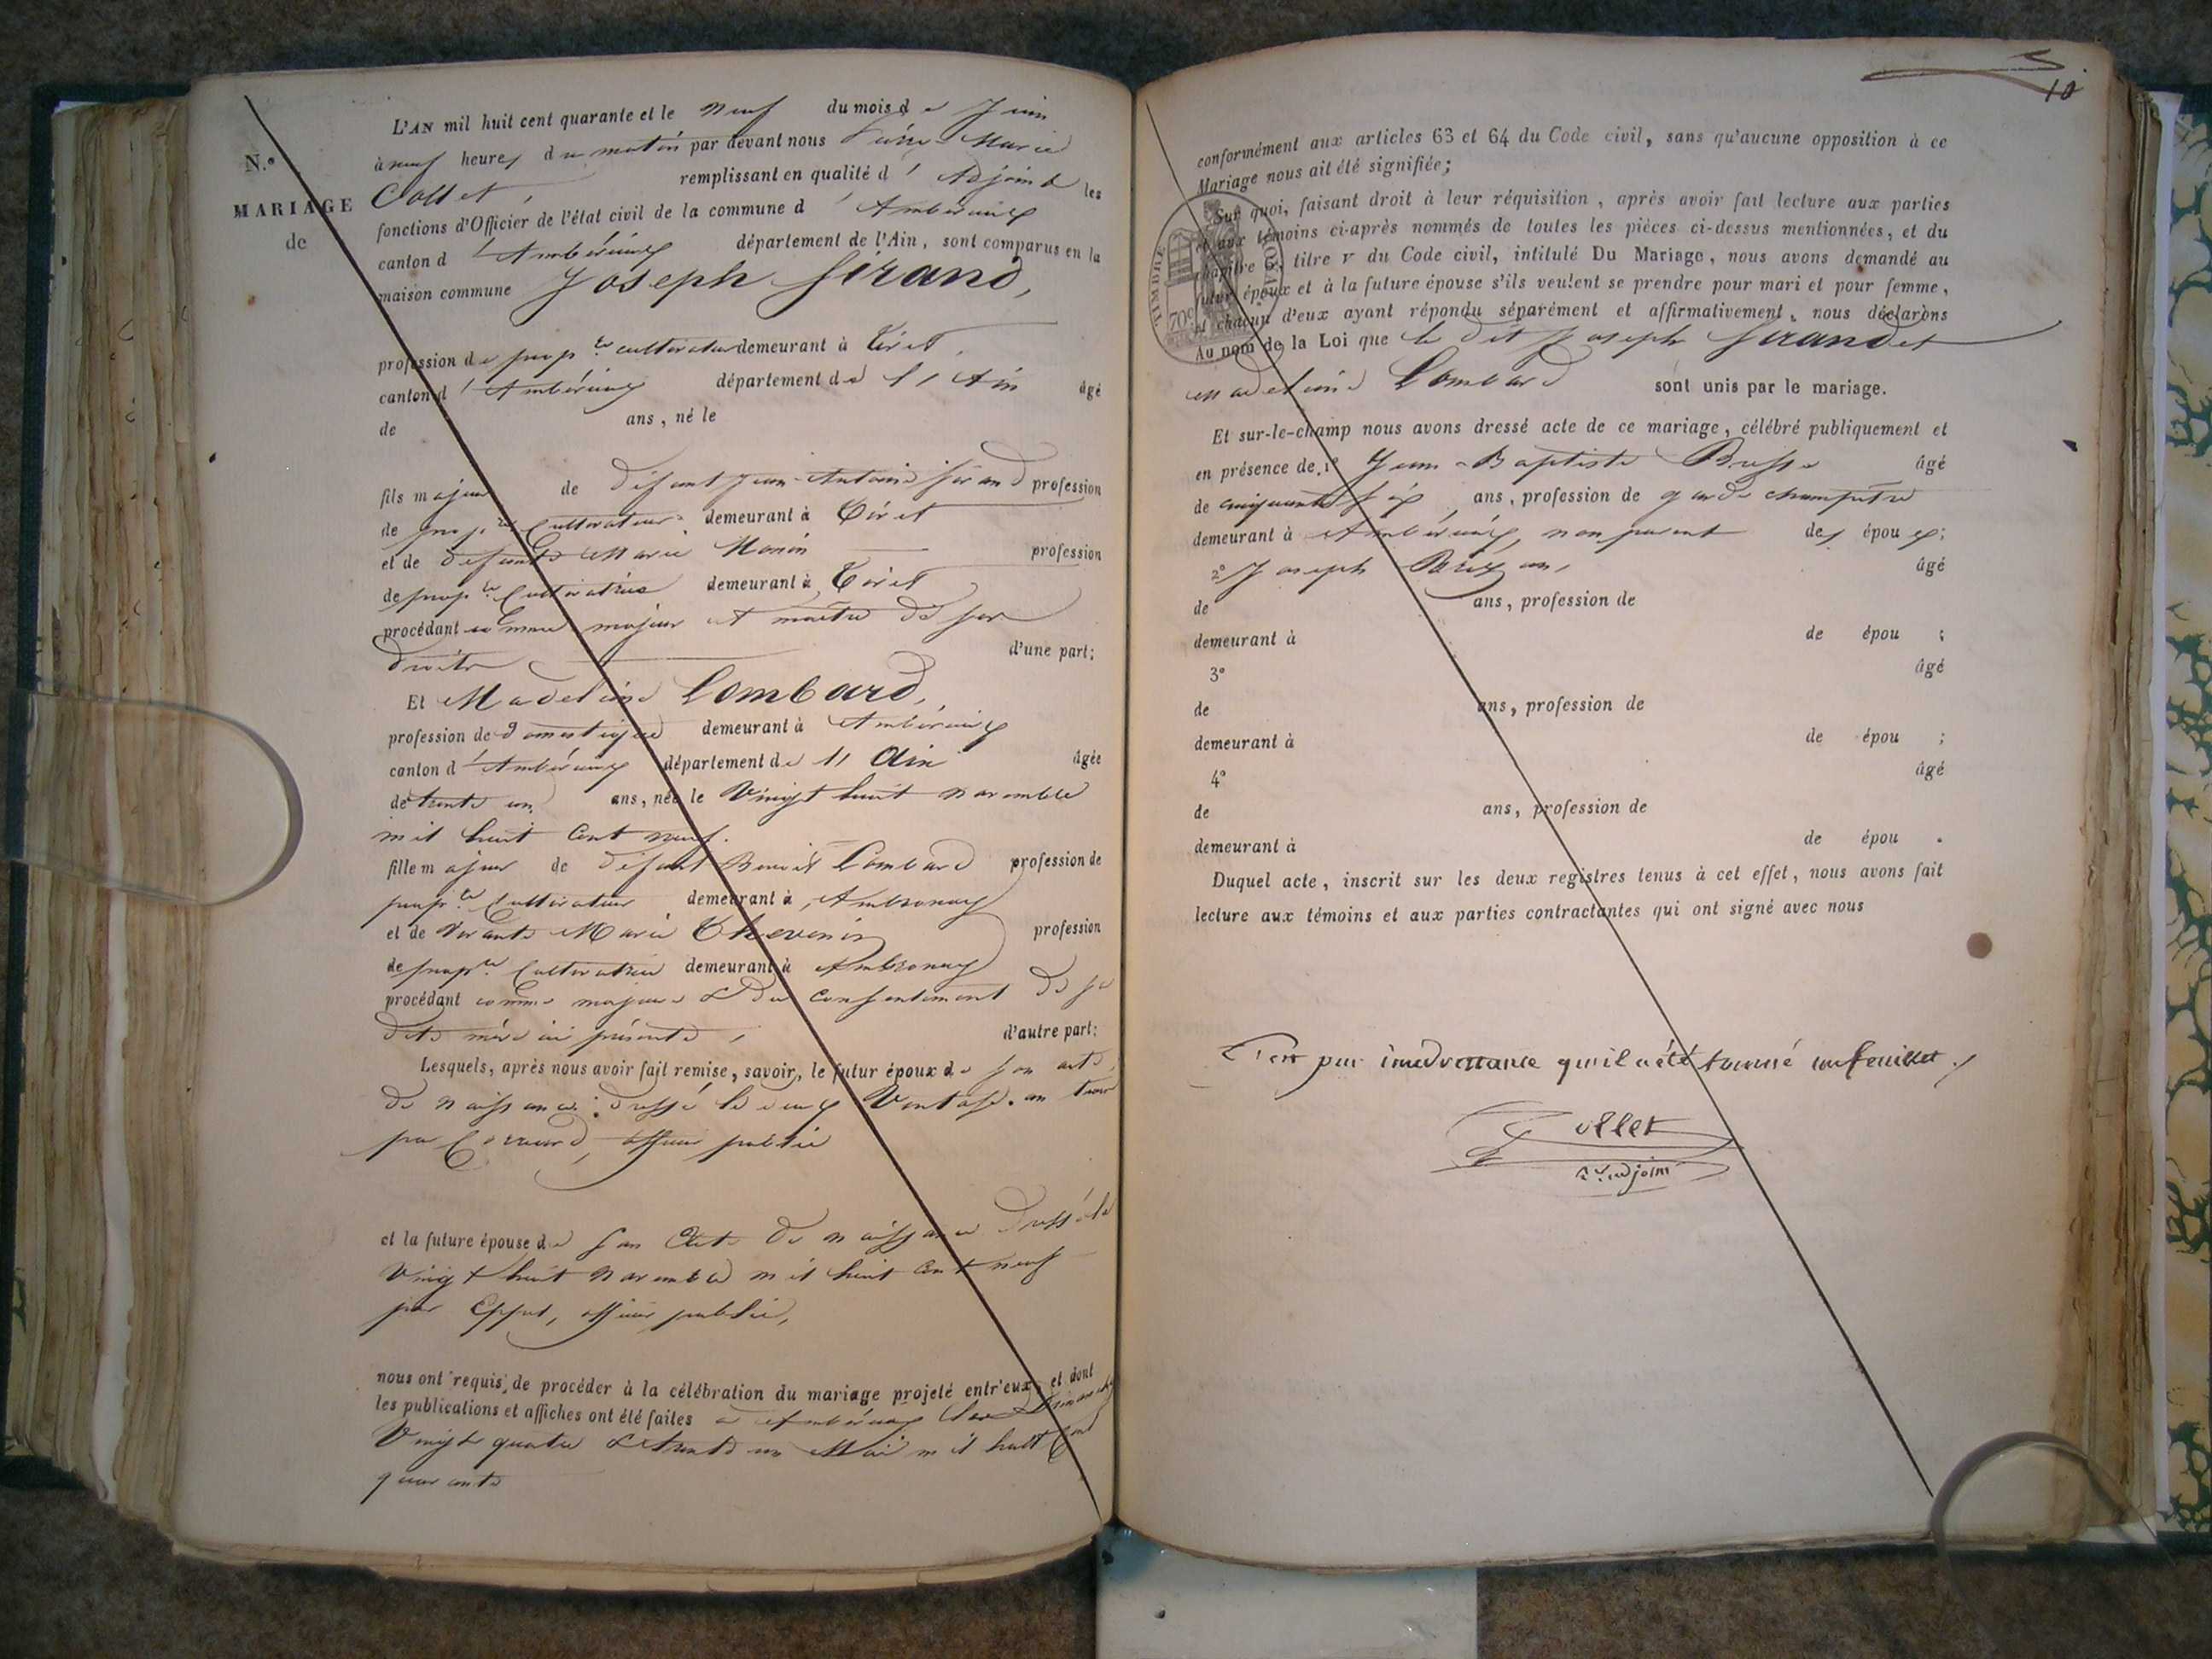 L'AN mil huit cent quarante et le neuf du mois de Juin
à neuf heures du matin par devant nous Pierre Marie
Collet, remplissant en qualité d' Adjoint les
fonctions d'Officier de l'état civil de la commune d' Ambérieux
canton d' Ambérieux département de l'Ain, sont comparus en la
maison commune Joseph Sirand,
N.º
MARIAGE
de
profession de prop.re cultivateur demeurant à Tiret,
canton d' Ambérieux département de l'Ain âgé
de ans, né le
fils majeur de défunt Jean-Antoine Sirand profession
de prop.re Cultivateur demeurant à Tiret
et de défunte Marie Monin profession
de prop.re Cultivatrice demeurant à Tiret
procédant comme majeur et maître de ses
droits d'une part;
Et Madeleine Lombard,
profession de domestique demeurant à Ambérieux
canton d' Ambérieux département de l'Ain âgée
de trente un ans, née le Vingt huit novembre
mil huit cent neuf.
fille majeure de défunt Benoit Lombard profession de
prop.re Cultivateur demeurant à Ambronay
et de vivante Marie Thevenin profession
de prop.re Cultivatrice demeurant à Ambronay
procédant comme majeure & du consentement de sa
dite mère ici présente, d'autre part;
Lesquels, après nous avoir fait remise, savoir, le futur époux de son acte
de naissance dressé le deux Ventose an
par officier public
et la future épouse de son acte de naissance dressé le
Vingt huit novembre mil huit cent neuf
par officier public,
nous ont requis de procéder à la célébration du mariage projeté entr'eux, et dont
les publications et affiches ont été faites à Ambérieux les Dimanches
Vingt quatre & trente un Mai mil huit cent
quarante
10
conformément aux articles 63 et 64 du Code civil, sans qu'aucune opposition à ce
Mariage nous ait été signifiée;
Sur quoi, faisant droit à leur réquisition, après avoir fait lecture aux parties
et aux témoins ci-après nommés de toutes les pièces ci-dessus mentionnées, et du
chapitre 6, titre v du Code civil, intitulé Du Mariage, nous avons demandé au
futur époux et à la future épouse s'ils veulent se prendre pour mari et pour femme,
et chacun d'eux ayant répondu séparément et affirmativement, nous déclarons
Au nom de la Loi que le dit Joseph Sirand et
Madeleine Lombard sont unis par le mariage.
TIMBRE ROYAL
70c
Et sur-le-champ nous avons dressé acte de ce mariage, célébré publiquement et
en présence de 1º Jean-Baptiste âgé
de cinquante six ans, profession de garde champêtre
demeurant à Ambérieux, non parent des époux;
2º Joseph âgé
de ans, profession de
demeurant à de épou ;
3º âgé
de ans, profession de
demeurant à de épou ;
4º âgé
de ans, profession de
demeurant à de épou .
Duquel acte, inscrit sur les deux registres tenus à cet effet, nous avons fait
lecture aux témoins et aux parties contractantes qui ont signé avec nous
C'est par inadvertance qu'il a été tourné un feuillet.
Collet
adjoint